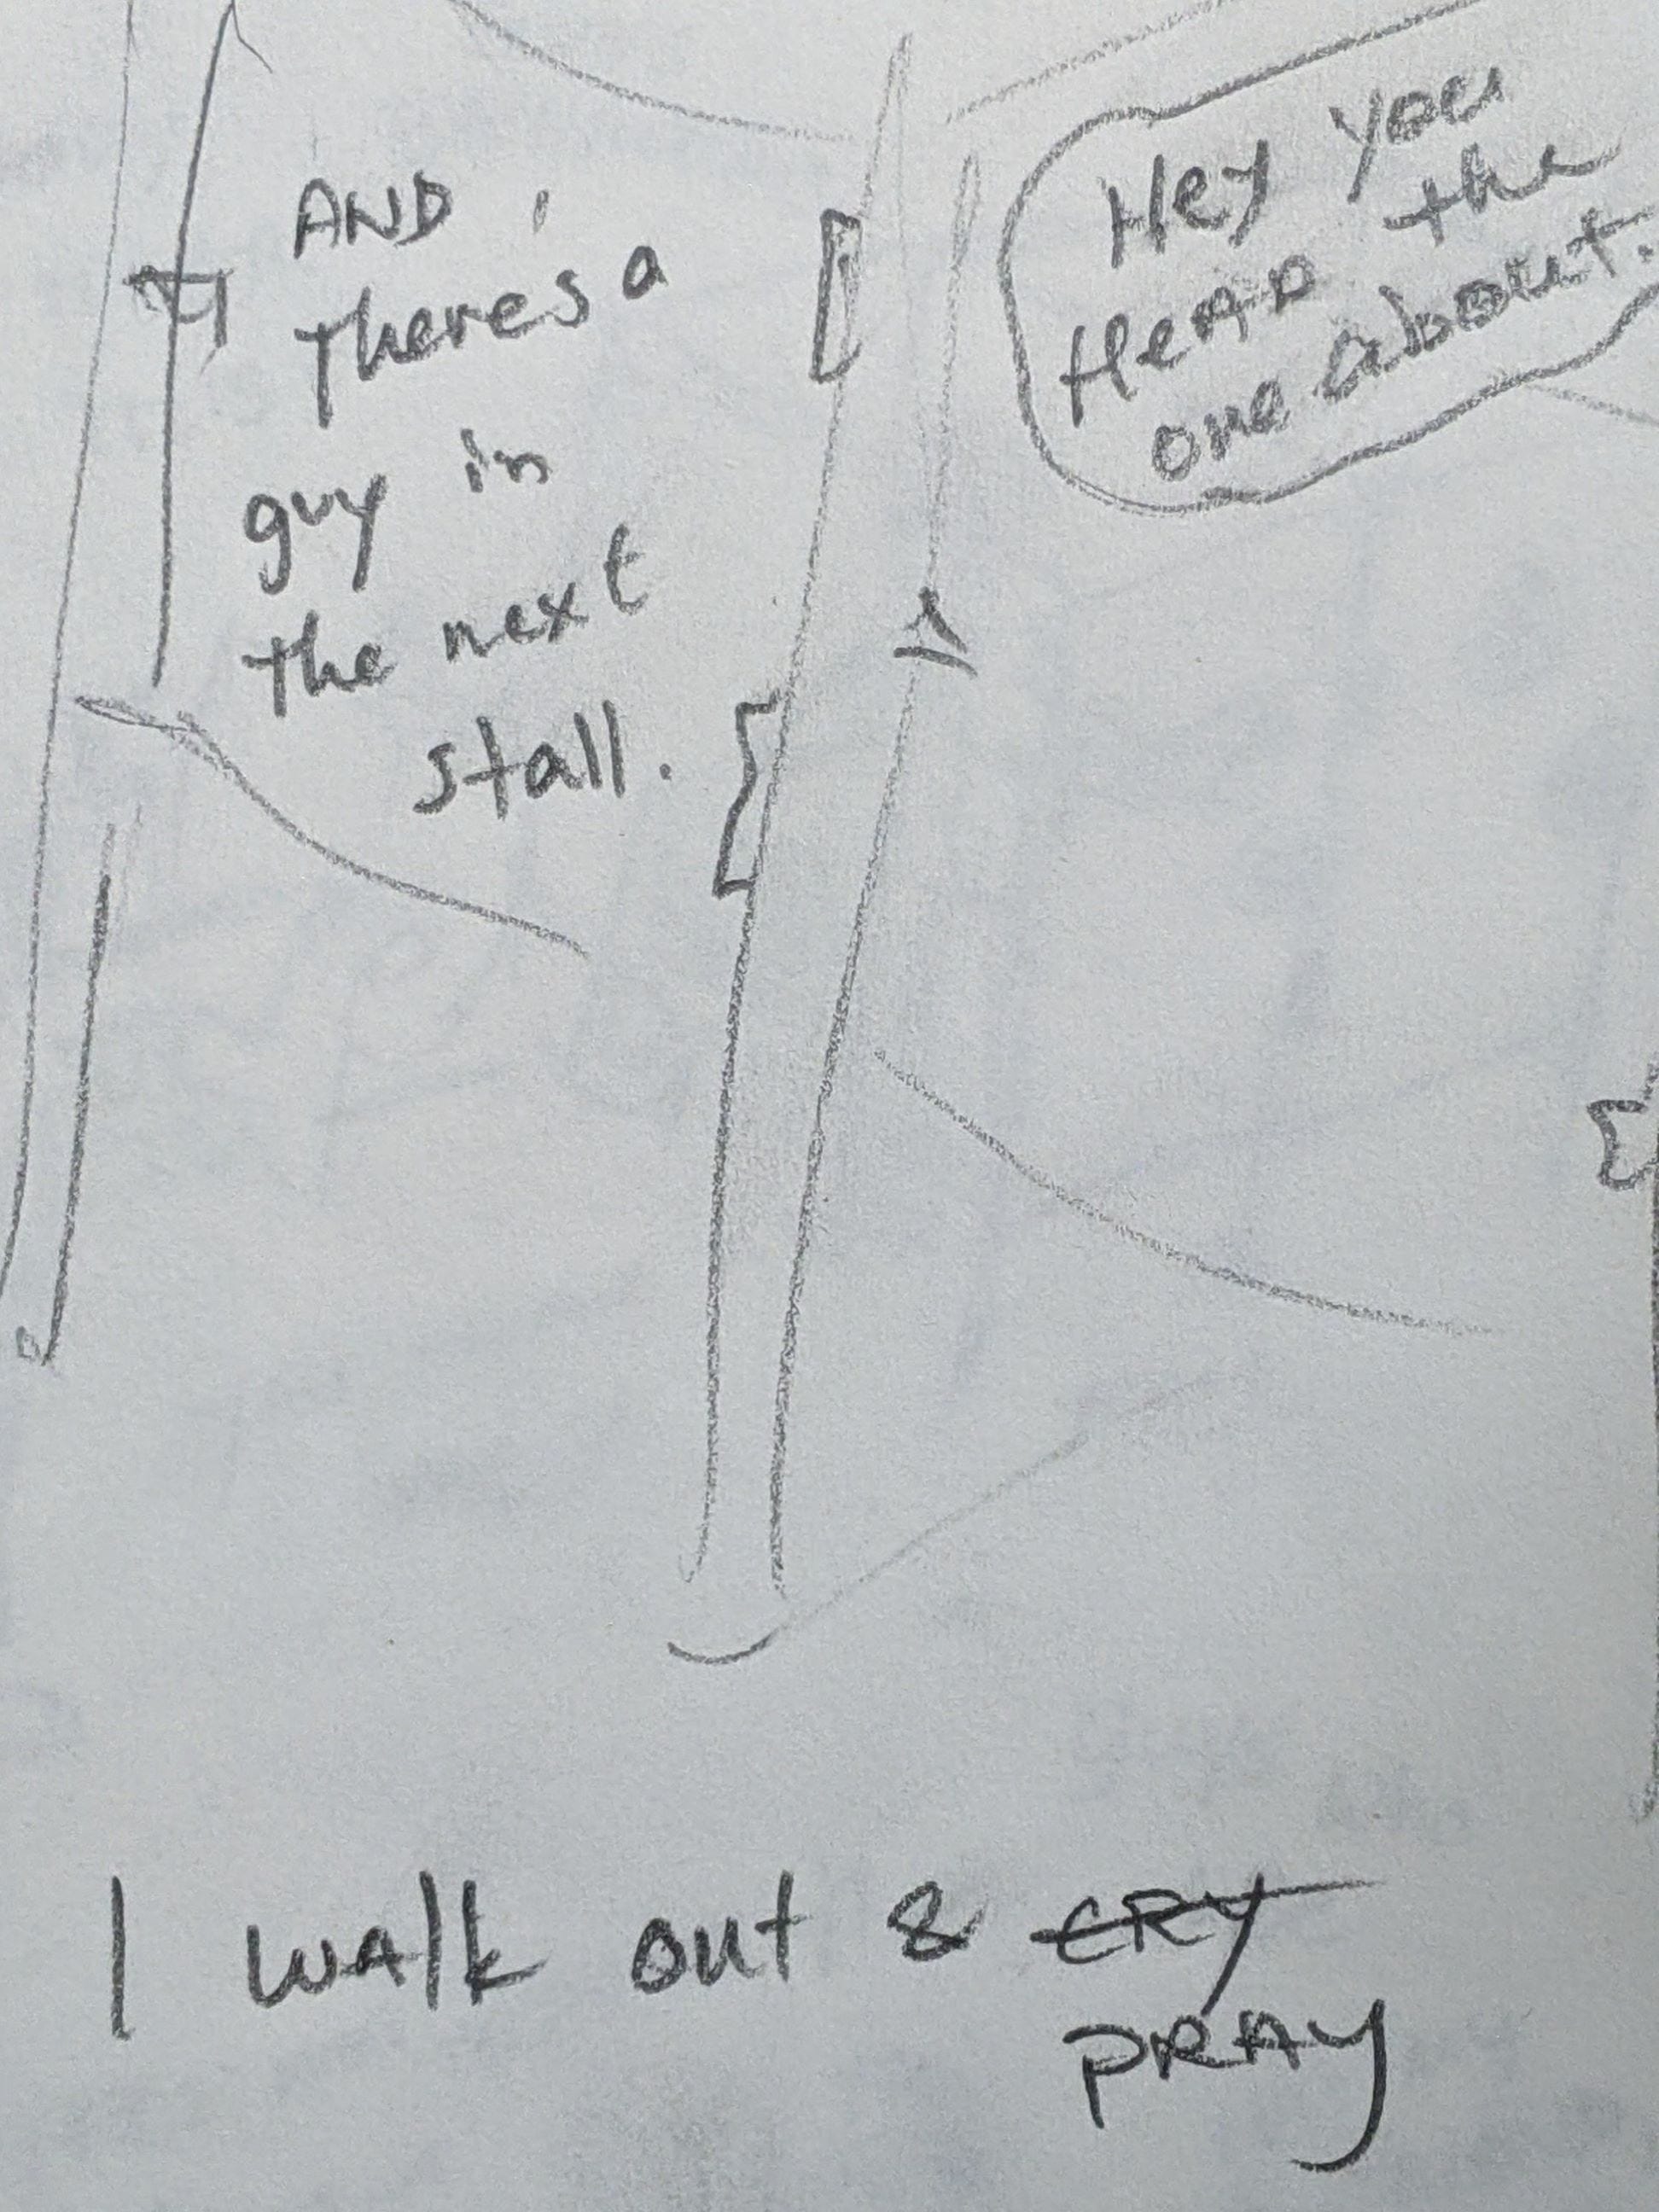 AND
there's a
guy in
the next
stall.
Hey you
HeAR the
one about.
I walk out & CRY
PRAY